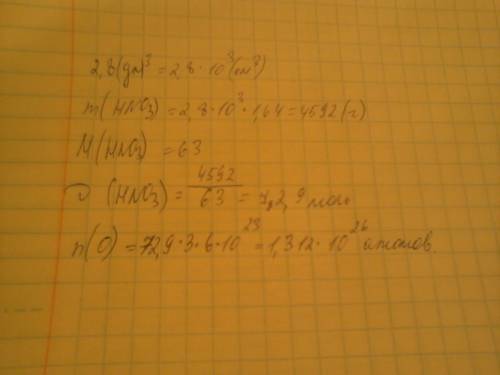 2,8(дм)³ = 2,8·10³(см³)
m(HNO₃) = 2,8·10³·1,64 = 4592(г)
M(HNO₃) = 63
υ(HNO₃) = 4592/63 = 72,9 моль
n(O) = 72,9·3·6·10²³ = 1,312·10²⁶ атомов.